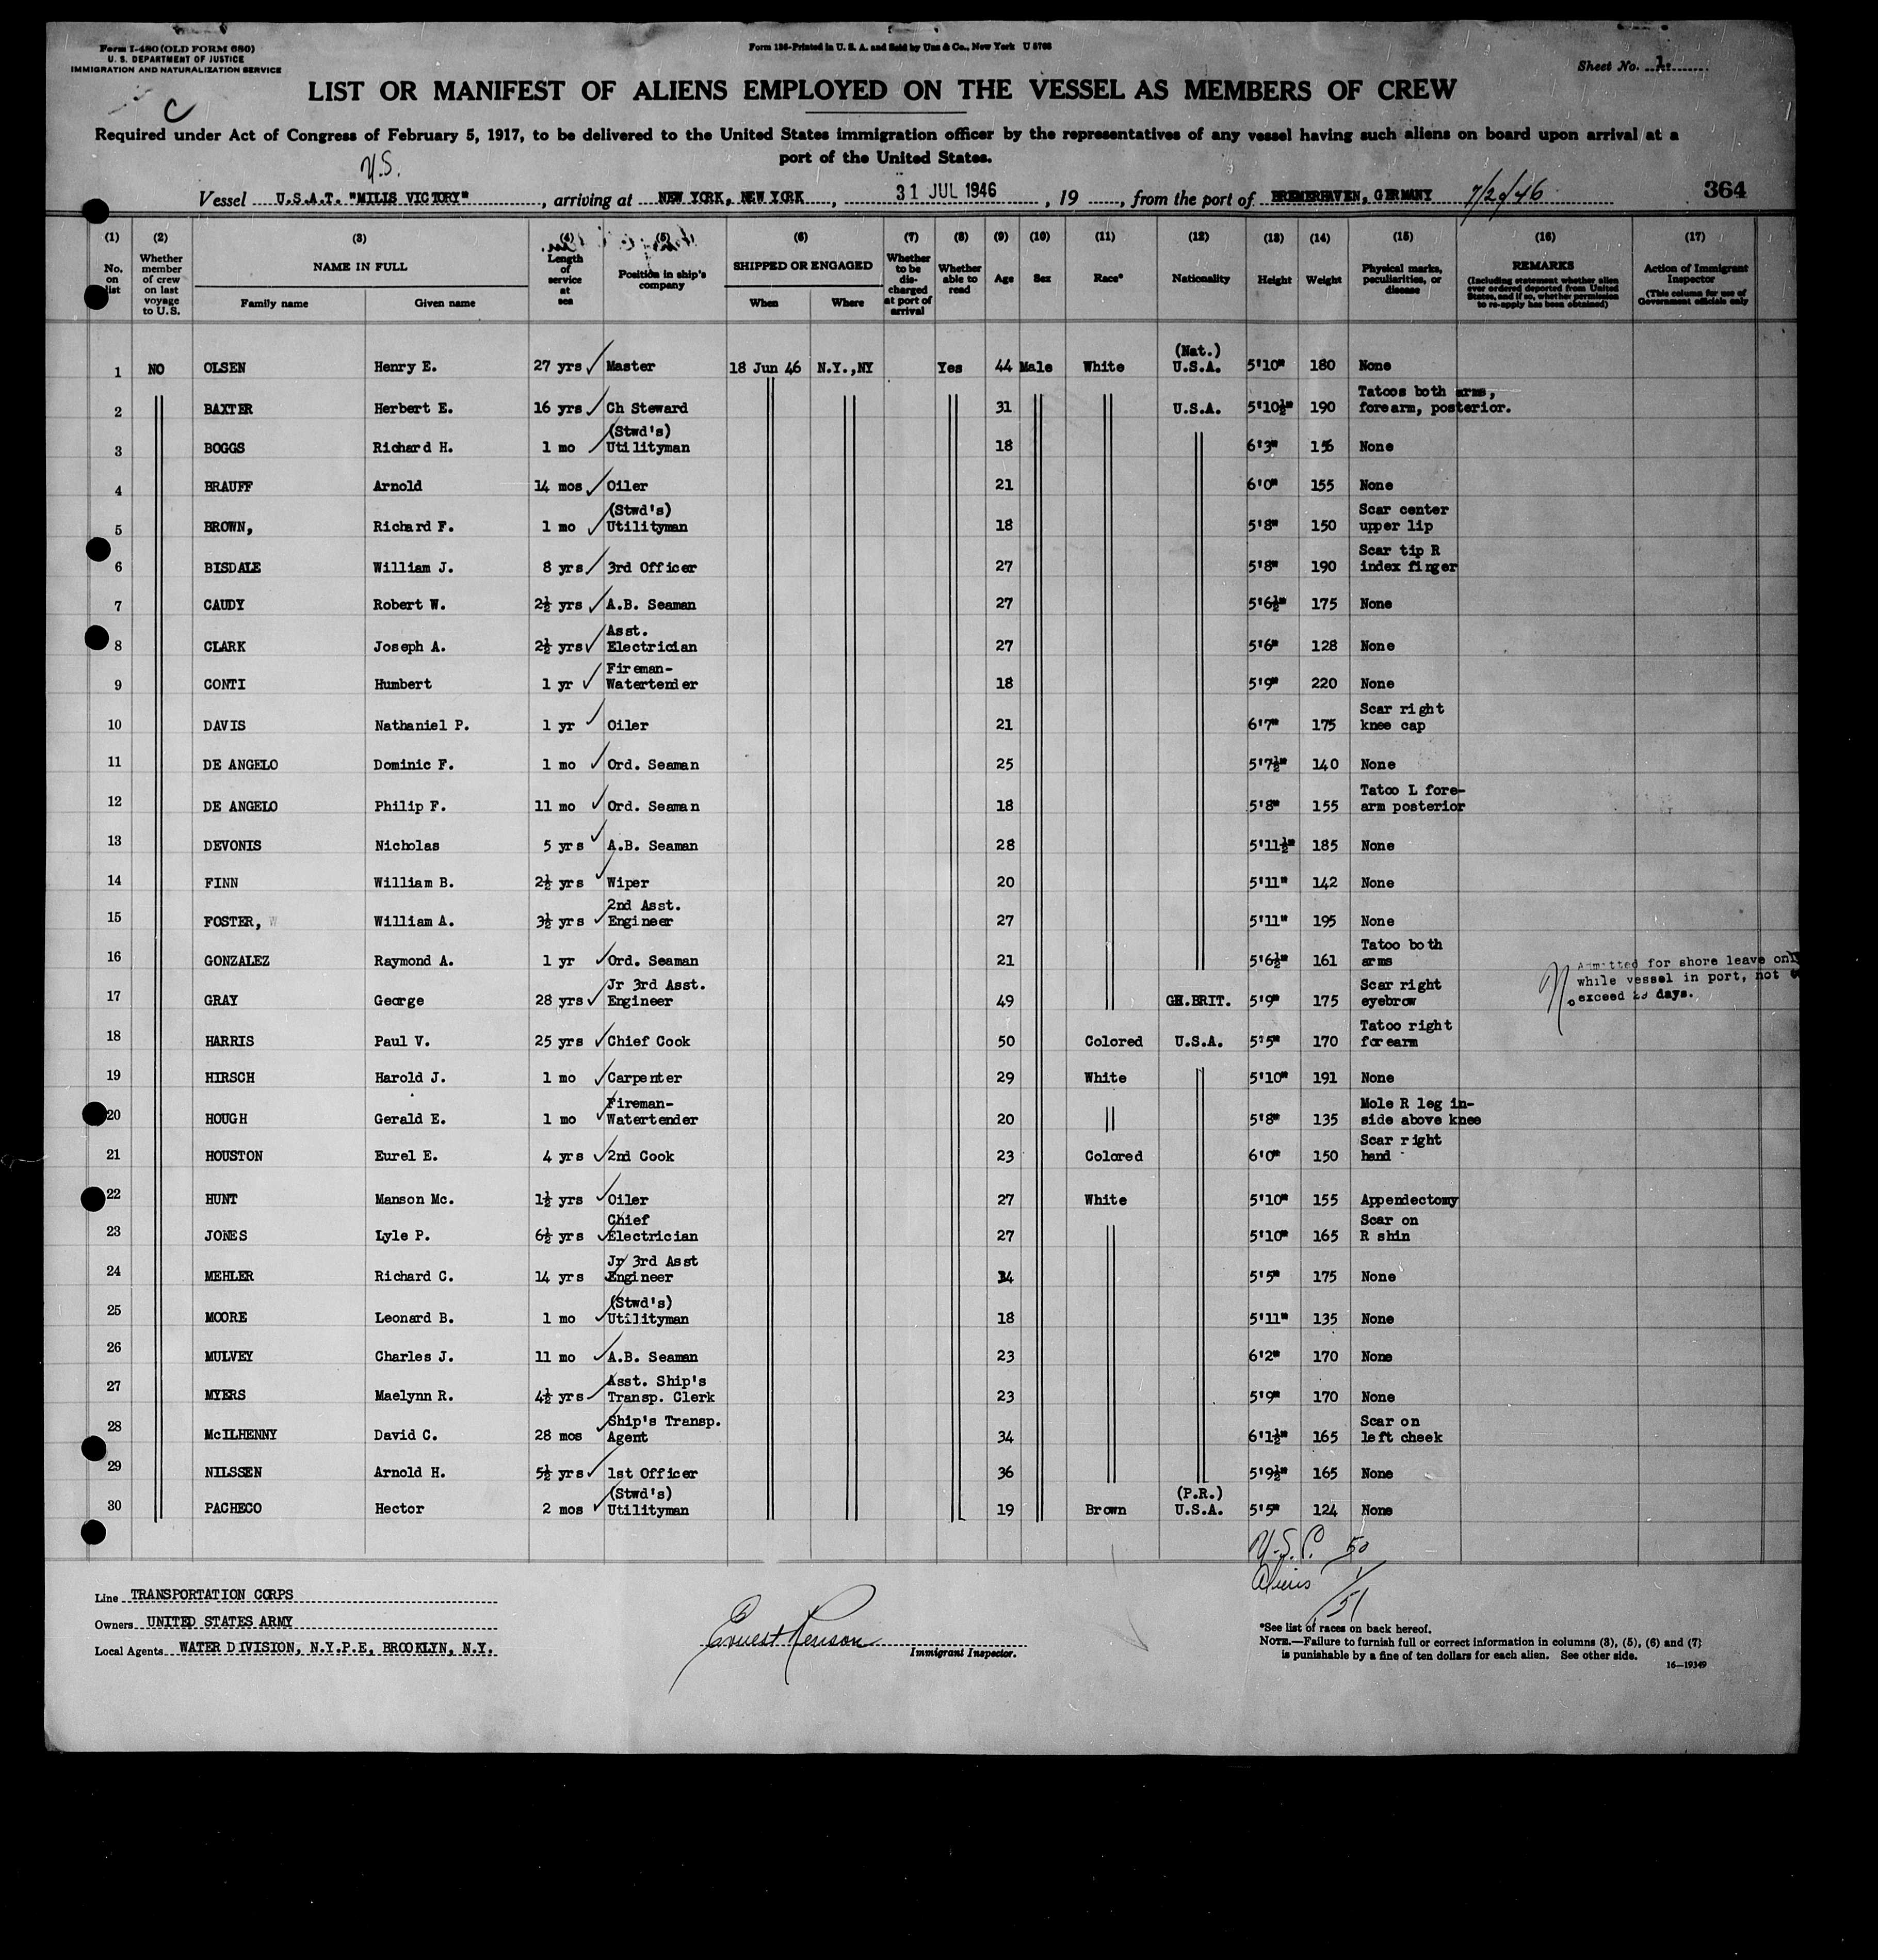 Form I-480 (OLD FORM 680)
U. S. DEPARTMENT OF JUSTICE
IMMIGRATION AND NATURALIZATION SERVICE
Form 136-Printed in U. S. A. and Sold by Unz & Co., New York U 5798
Sheet No. 1.
C
LIST OR MANIFEST OF ALIENS EMPLOYED ON THE VESSEL AS MEMBERS OF CREW
Required under Act of Congress of February 5, 1917, to be delivered to the United States immigration officer by the representatives of any vessel having such aliens on board upon arrival at a
port of the United States.
U.S.
Vessel U.S.A.T. "MILIS VICTORY", arriving at NEW YORK, NEW YORK, 31 JUL 1946, 19, from the port of BREMERHAVEN, GERMANY 364
(1) (2) (3) (4) (5) (6) (7) (8) (9) (10) (11) (12) (13) (14) (15) (16) (17)
No. on list
Whether member of crew on last voyage to U.S.
NAME IN FULL
Family name Given name
Length of service at sea
Position in ship's company
SHIPPED OR ENGAGED
When Where
Whether to be discharged at port of arrival
Whether able to read
Age Sex Race* Nationality Height Weight
Physical marks, peculiarities, or disease
REMARKS
(Including statement whether alien ever ordered deported from United States, and if so, whether permission to re-apply has been obtained)
Action of Immigrant Inspector
(This column for use of Government officials only
1 NO OLSEN Henry E. 27 yrs Master 18 Jun 46 N.Y.,NY Yes 44 Male White (Nat.) U.S.A. 5'10" 180 None
2 BAXTER Herbert E. 16 yrs Ch Steward 31 U.S.A. 5'10½" 190 Tatoos both arms, forearm, posterior.
3 BOGGS Richard H. 1 mo (Stwd's) Utilityman 18 6'3" 156 None
4 BRAUFF Arnold 14 mos Oiler 21 6'0" 155 None
5 BROWN, Richard F. 1 mo (Stwd's) Utilityman 18 5'8" 150 Scar center upper lip
6 BISDALE William J. 8 yrs 3rd Officer 27 5'8" 190 Scar tip R index finger
7 CAUDY Robert W. 2½ yrs A.B. Seaman 27 5'6½" 175 None
8 CLARK Joseph A. 2½ yrs Asst. Electrician 27 5'6" 128 None
9 CONTI Humbert 1 yr Fireman-Watertender 18 5'9" 220 None
10 DAVIS Nathaniel P. 1 yr Oiler 21 6'7" 175 Scar right knee cap
11 DE ANGELO Dominic F. 1 mo Ord. Seaman 25 5'7½" 140 None
12 DE ANGELO Philip F. 11 mo Ord. Seaman 18 5'8" 155 Tatoo L fore-arm posterior
13 DEVONIS Nicholas 5 yrs A.B. Seaman 28 5'11½" 185 None
14 FINN William B. 2½ yrs Wiper 20 5'11" 142 None
15 FOSTER, William A. 3½ yrs 2nd Asst. Engineer 27 5'11" 195 None
16 GONZALEZ Raymond A. 1 yr Ord. Seaman 21 5'6½" 161 Tatoo both arms
17 GRAY George 28 yrs Jr 3rd Asst. Engineer 49 GR.BRIT. 5'9" 175 Scar right eyebrow
Admitted for shore leave only
while vessel in port, not to
exceed 29 days.
18 HARRIS Paul V. 25 yrs Chief Cook 50 Colored U.S.A. 5'5" 170 Tatoo right forearm
19 HIRSCH Harold J. 1 mo Carpenter 29 White 5'10" 191 None
20 HOUGH Gerald E. 1 mo Fireman-Watertender 20 5'8" 135 Mole R leg in-side above knee
21 HOUSTON Eurel E. 4 yrs 2nd Cook 23 Colored 6'0" 150 Scar right hand
22 HUNT Manson Mc. 1½ yrs Oiler 27 White 5'10" 155 Appendectomy
23 JONES Lyle P. 6½ yrs Chief Electrician 27 5'10" 165 Scar on R shin
24 MEHLER Richard C. 14 yrs Jr 3rd Asst Engineer 5'5" 175 None
25 MOORE Leonard B. 1 mo (Stwd's) Utilityman 18 5'11" 135 None
26 MULVEY Charles J. 11 mo A.B. Seaman 23 6'2" 170 None
27 MYERS Maelynn R. 4½ yrs Asst. Ship's Transp. Clerk 23 5'9" 170 None
28 McILHENNY David C. 28 mos Ship's Transp. Agent 34 6'1½" 165 Scar on left cheek
29 NILSSEN Arnold H. 5½ yrs 1st Officer 36 5'9½" 165 None
30 PACHECO Hector 2 mos (Stwd's) Utilityman 19 Brown (P.R.) U.S.A. 5'5" 124 None
U.S.C. 50
Aliens 1
51
Line TRANSPORTATION CORPS
Owners UNITED STATES ARMY
Local Agents WATER DIVISION, N.Y.P.E, BROOKLYN, N.Y.
Immigrant Inspector.
*See list of races on back hereof.
NOTE.—Failure to furnish full or correct information in columns (3), (5), (6) and (7)
is punishable by a fine of ten dollars for each alien. See other side.
16—19349